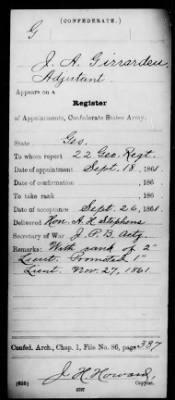 (CONFEDERATE.)
G
J. A. Girrardeu
Adjutant
Appears on a
Register
of Appointments, Confederate States Army.
State Geo.
To whom report 22 Geo. Regt.
Date of appointment Sept. 18, 1861
Date of confirmation , 186 .
To take rank , 186 .
Date of acceptance Sept. 26, 1861.
Delivered Hon. A. H. Stephens
Secretary of War J. P. B. Actg.
Remarks: With rank of 2"
Lieut. Promoted 1"
Lieut Nov. 27, 1861
Confed. Arch., Chap. 1, File No. 86, page 337
J. H. Howard,
Copyist.